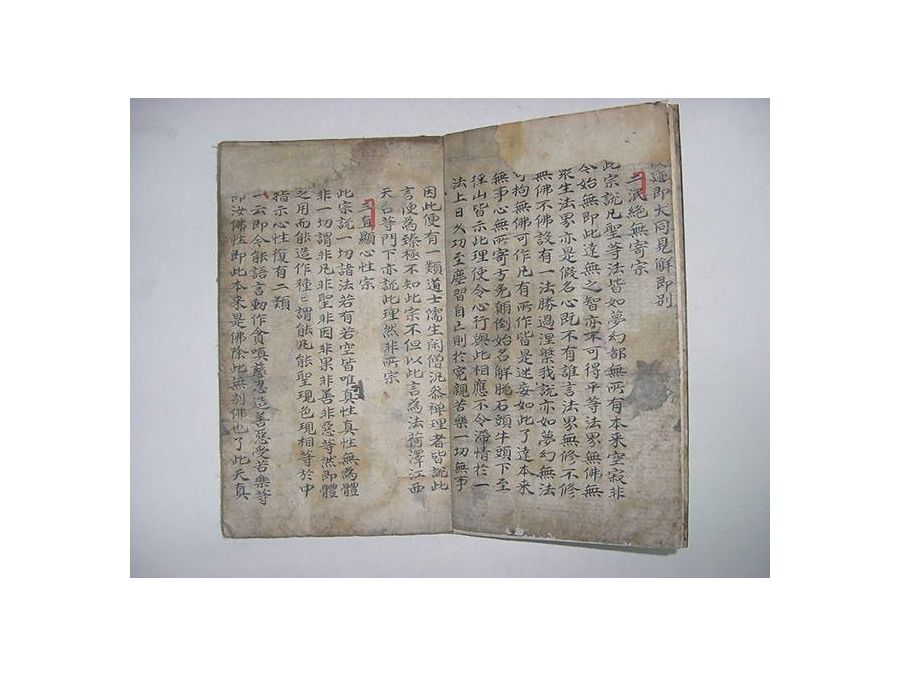 即大同見解即別
二泯絶無寄宗
此宗說凡聖等法皆如夢幻都無所有本来空寂非
今始無即此達無之智亦不可得平等法界無佛無
衆生法界亦是假名心既不有誰言法界無修不修
無佛不佛設有一法勝過涅槃我說亦如夢幻無法
可拘無佛可作凡有所作皆是迷妄如此了達本来
無事心無所寄方免顛倒始名解脫石頭牛頭下至
徑山皆示此理使令心行與此相應不令滯情於一
法上日久功至塵習自亡則於寃親苦樂一切無事
因此便有一類道士儒生閑僧汎叅禅理者皆說此
言便為臻極不知此宗不但以此言為法荷澤江西
天台等門下亦說此理然非所宗
三直顯心性宗
此宗說一切諸法若有若空皆唯真性真性無為體
非一切謂非凡非聖非因非果非善非惡等然即體
之用而能造作種〻謂能凡能聖現色現相等於中
指示心性復有二類
一云即今能語言動作貪嗔慈忍造善惡受苦樂等
即汝佛性即此本来是佛除此無別佛也了此天真